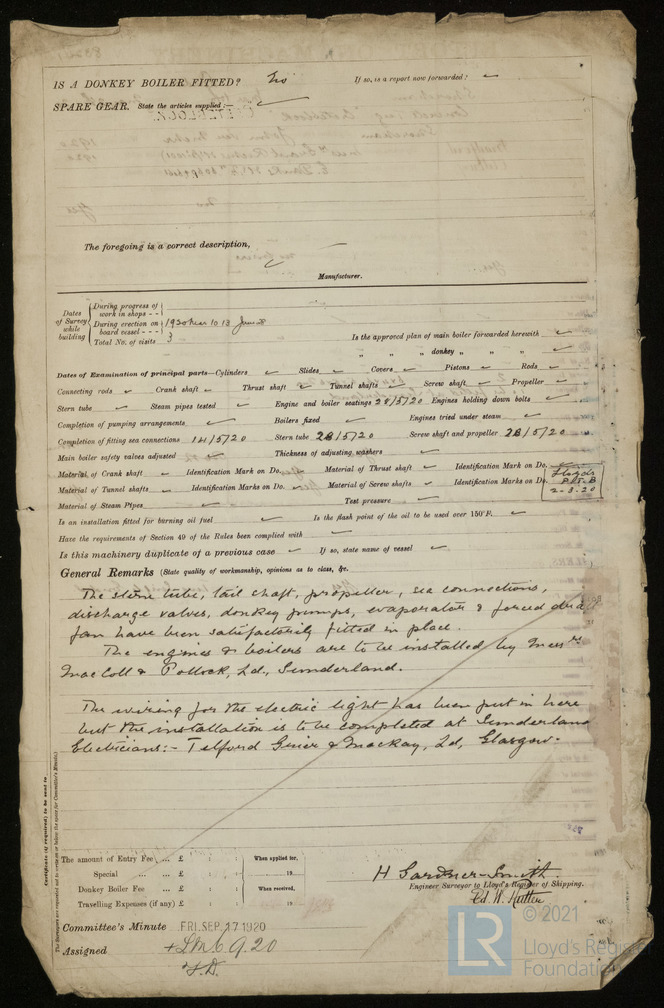 IS A DONKEY BOILER FITTED? No If so, is a report now forwarded?
SPARE GEAR. State the articles supplied:—
The foregoing is a correct description,
Manufacturer.
Dates of Survey while building
During progress of work in shops - -
During erection on board vessel - - - 1920 Mar 10 13 June 28
Total No. of visits 3
Is the approved plan of main boiler forwarded herewith
" " " donkey " " "
Dates of Examination of principal parts—Cylinders Slides Covers Pistons Rods
Connecting rods Crank shaft Thrust shaft Tunnel shafts Screw shaft Propeller
Stern tube Steam pipes tested Engine and boiler seatings 28/5/20 Engines holding down bolts
Completion of pumping arrangements Boilers fixed Engines tried under steam
Completion of fitting sea connections 14/5/20 Stern tube 28/5/20 Screw shaft and propeller 28/5/20
Main boiler safety valves adjusted Thickness of adjusting washers
Material of Crank shaft Identification Mark on Do. Material of Thrust shaft Identification Mark on Do.
Lloyds
2-3-20
Material of Tunnel shafts Identification Marks on Do. Material of Screw shafts Identification Marks on Do.
Material of Steam Pipes Test pressure
Is an installation fitted for burning oil fuel Is the flash point of the oil to be used over 150°F.
Have the requirements of Section 49 of the Rules been complied with
Is this machinery duplicate of a previous case If so, state name of vessel
General Remarks (State quality of workmanship, opinions as to class, &c.
The stern tube, tail shaft, propeller, sea connections,
discharge valves, donkey pumps, evaporator & forced draft
fan have been satisfactorily fitted in place.
The engines & boilers are to be installed by Messrs
MacColl & Pollock, Ld., Sunderland.
The wiring for the electric light has been put in here
but the installation is to be completed at Sunderland
Electricians:- Telford Grier & Mackay, Ld, Glasgow.
Certificate (if required) to be sent to
The Surveyors are requested not to write on or below the space for Committee's Minute.
The amount of Entry Fee ... £ : : When applied for,
Special ... ... £ : : 19
Donkey Boiler Fee ... £ : : When received,
Travelling Expenses (if any) £ : : 19
H Gardner-Smith
Engineer Surveyor to Lloyd's Register of Shipping.
Committee's Minute FRI. SEP. 17 1920
Assigned + LMC 9.20
F.D.
© 2021
LR
Lloyd's Register
Foundation